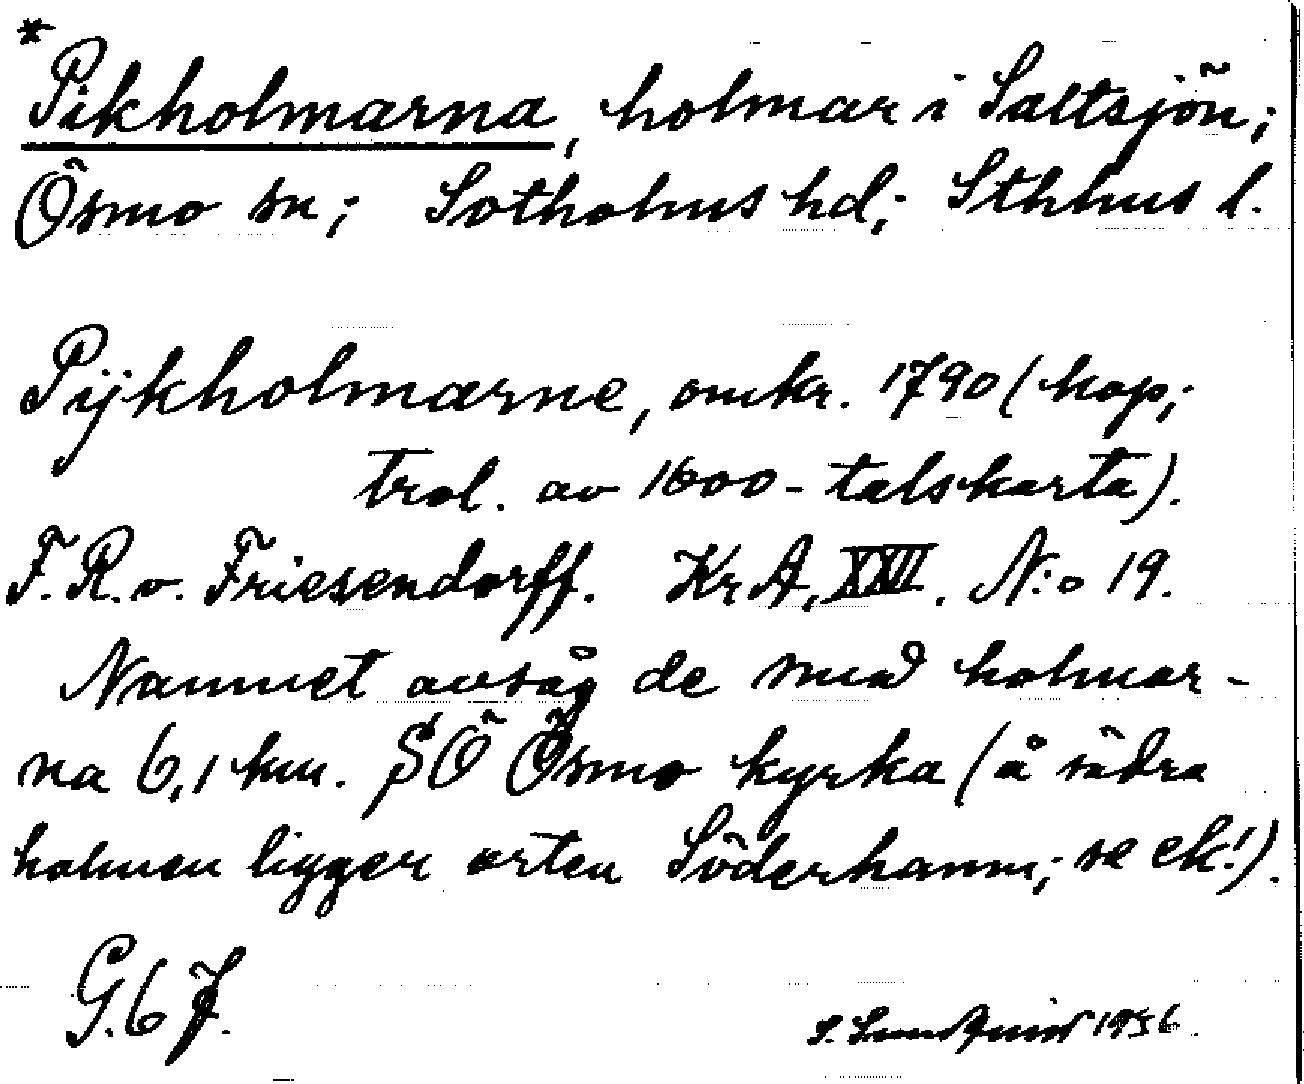 *
Pikholmarna, holmar i Saltsjön;
Ösmo sn; Sotholms hd; Sthlms l.
Pijkholmarne, omkr. 1790 (kop;
trol. av 1600-talskarta).
F. R. v. Friesendorff. KrA, XXII. N:o 19.
Namnet avsåg de små holmar-
na 6,1 km. SÖ Ösmo kyrka (å södra
holmen ligger orten Söderhamn; se ek!).
G. 6 J.
S. Lundqvist 1956.